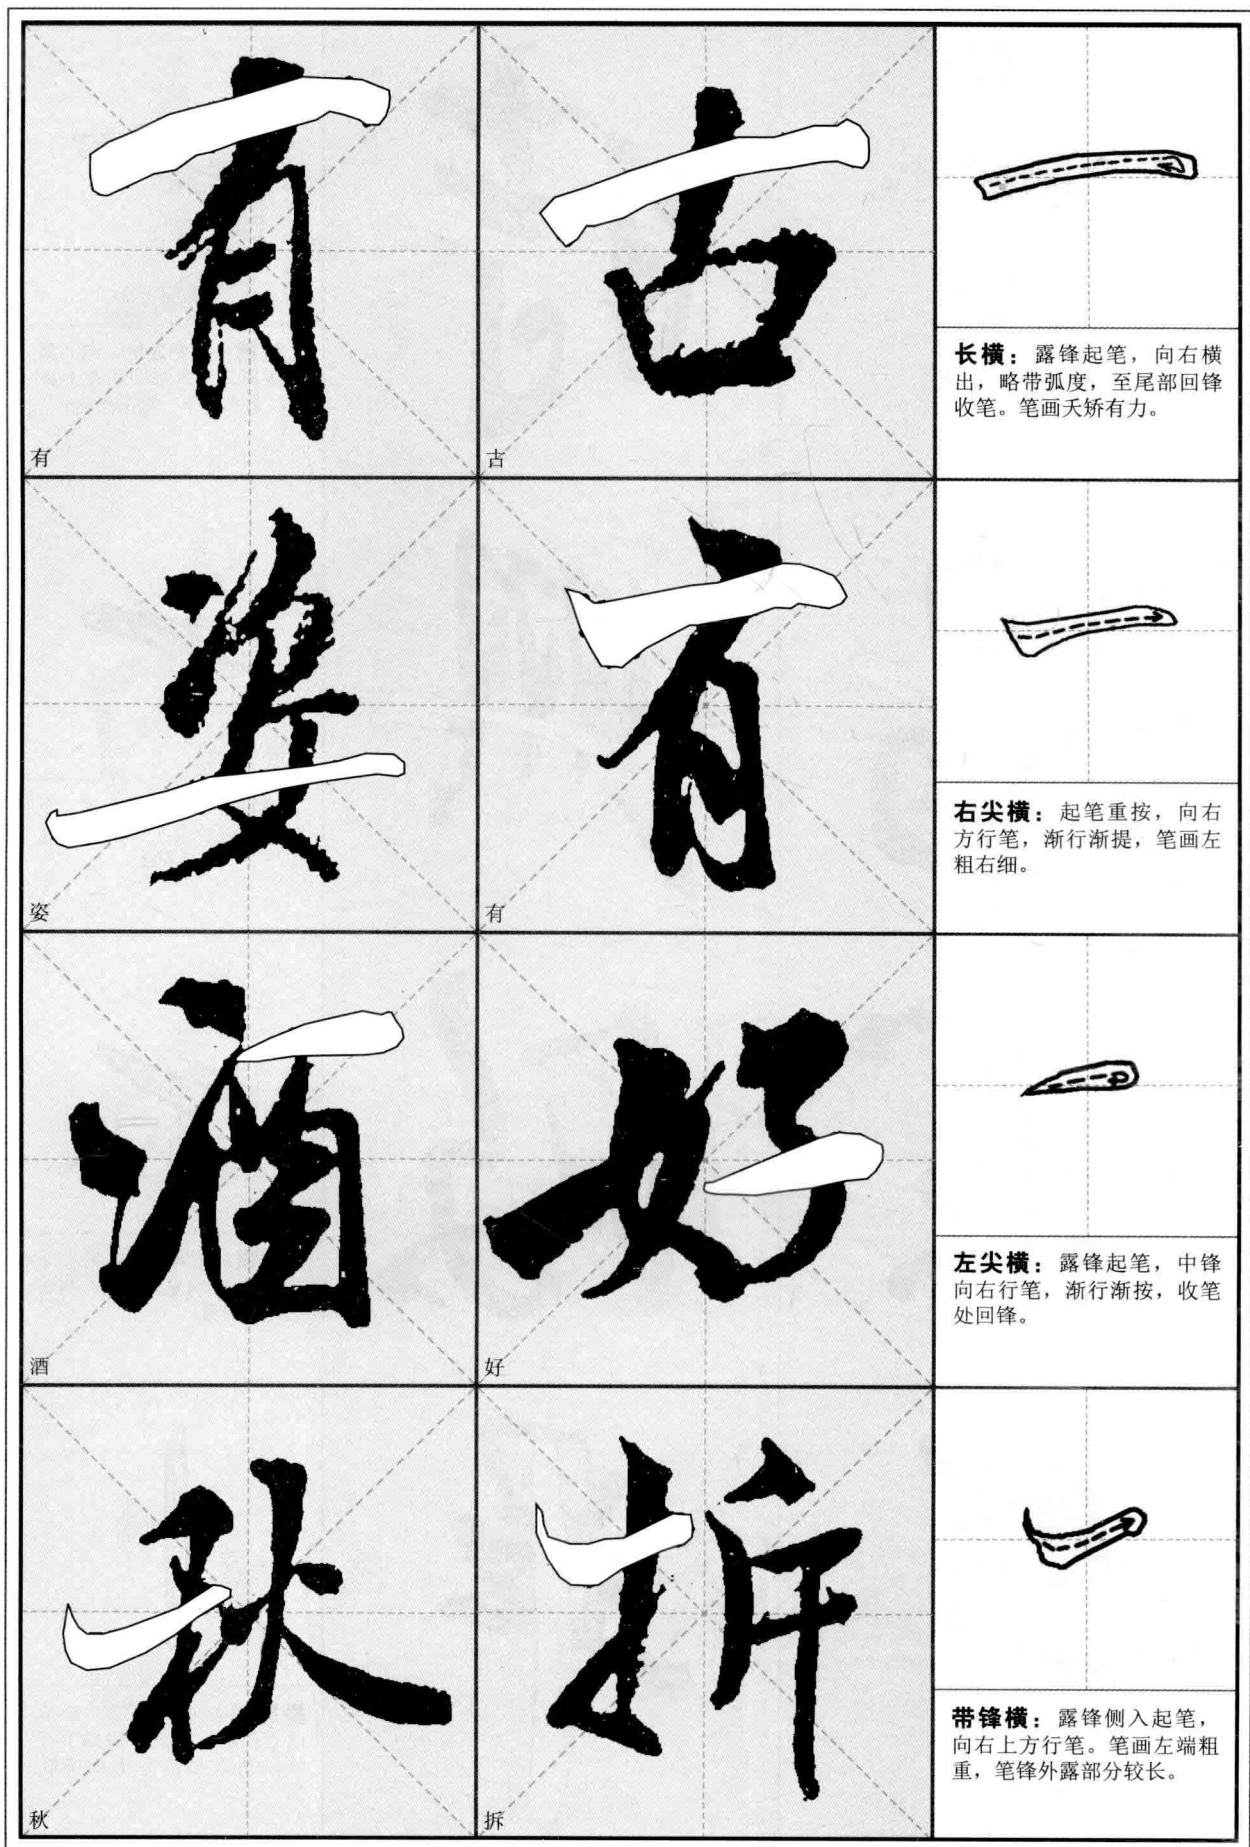 有
有
古
古
长横：露锋起笔，向右横
出，略带弧度，至尾部回锋
收笔。笔画夭矫有力。
姿
姿
有
有
右尖横：起笔重按，向右
方行笔，渐行渐提，笔画左
粗右细。
酒
酒
好
好
左尖横：露锋起笔，中锋
向右行笔，渐行渐按，收笔
处回锋。
秋
秋
拆
拆
带锋横：露锋侧入起笔，
向右上方行笔。笔画左端粗
重，笔锋外露部分较长。